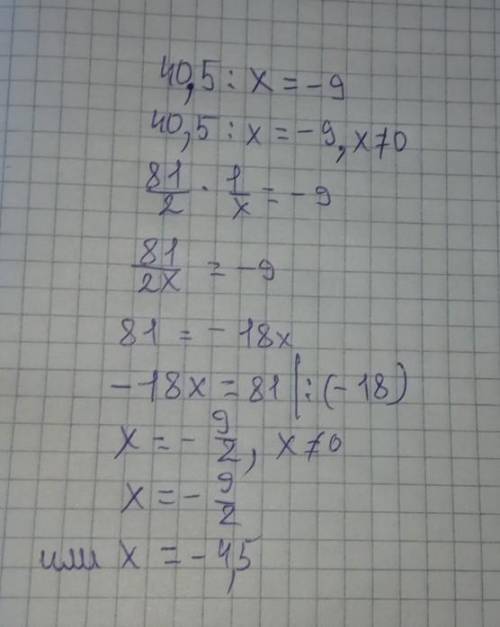 40,5 : x = -9
40,5 : x = -9, x≠0
81/2 · 1/x = -9
81/2x = -9
81 = -18x
-18x = 81 | : (-18)
x = -9/2, x≠0
x = -9/2
или x = -4,5